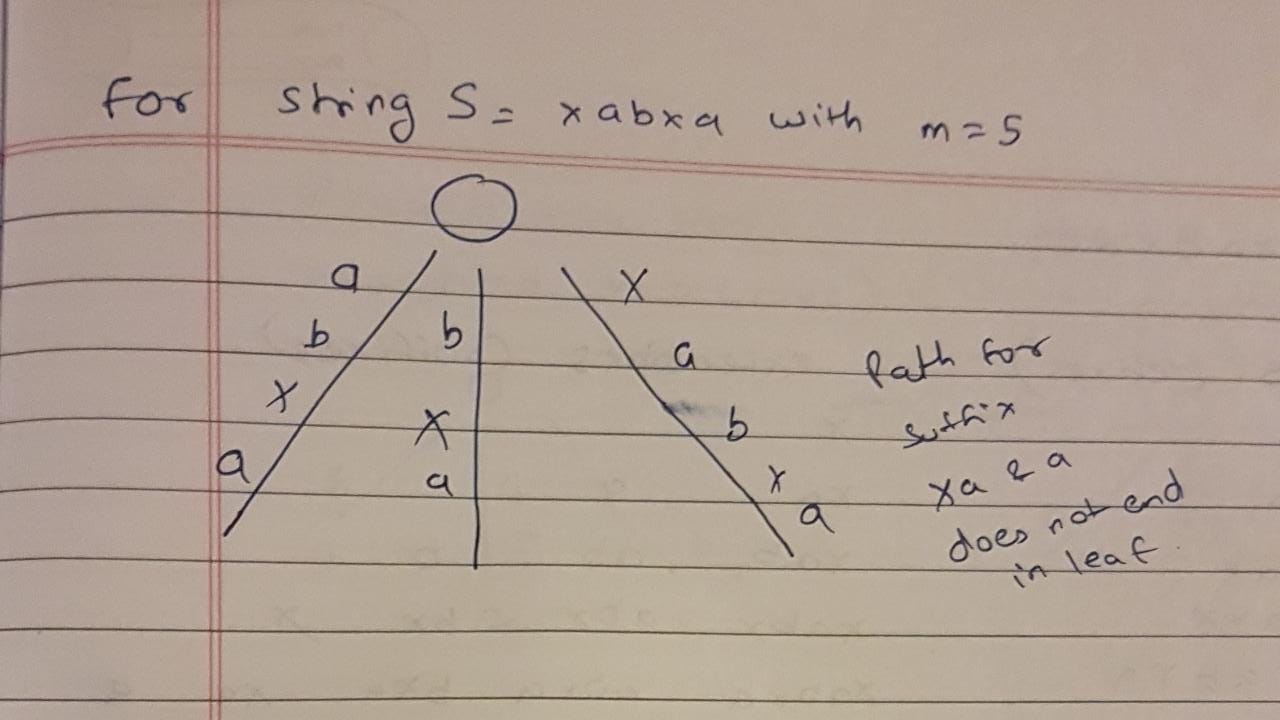 For string S = xabxa with m = 5
a b x a
b x a
x a b x a
Path for
suffix
xa & a
does not end
in leaf.